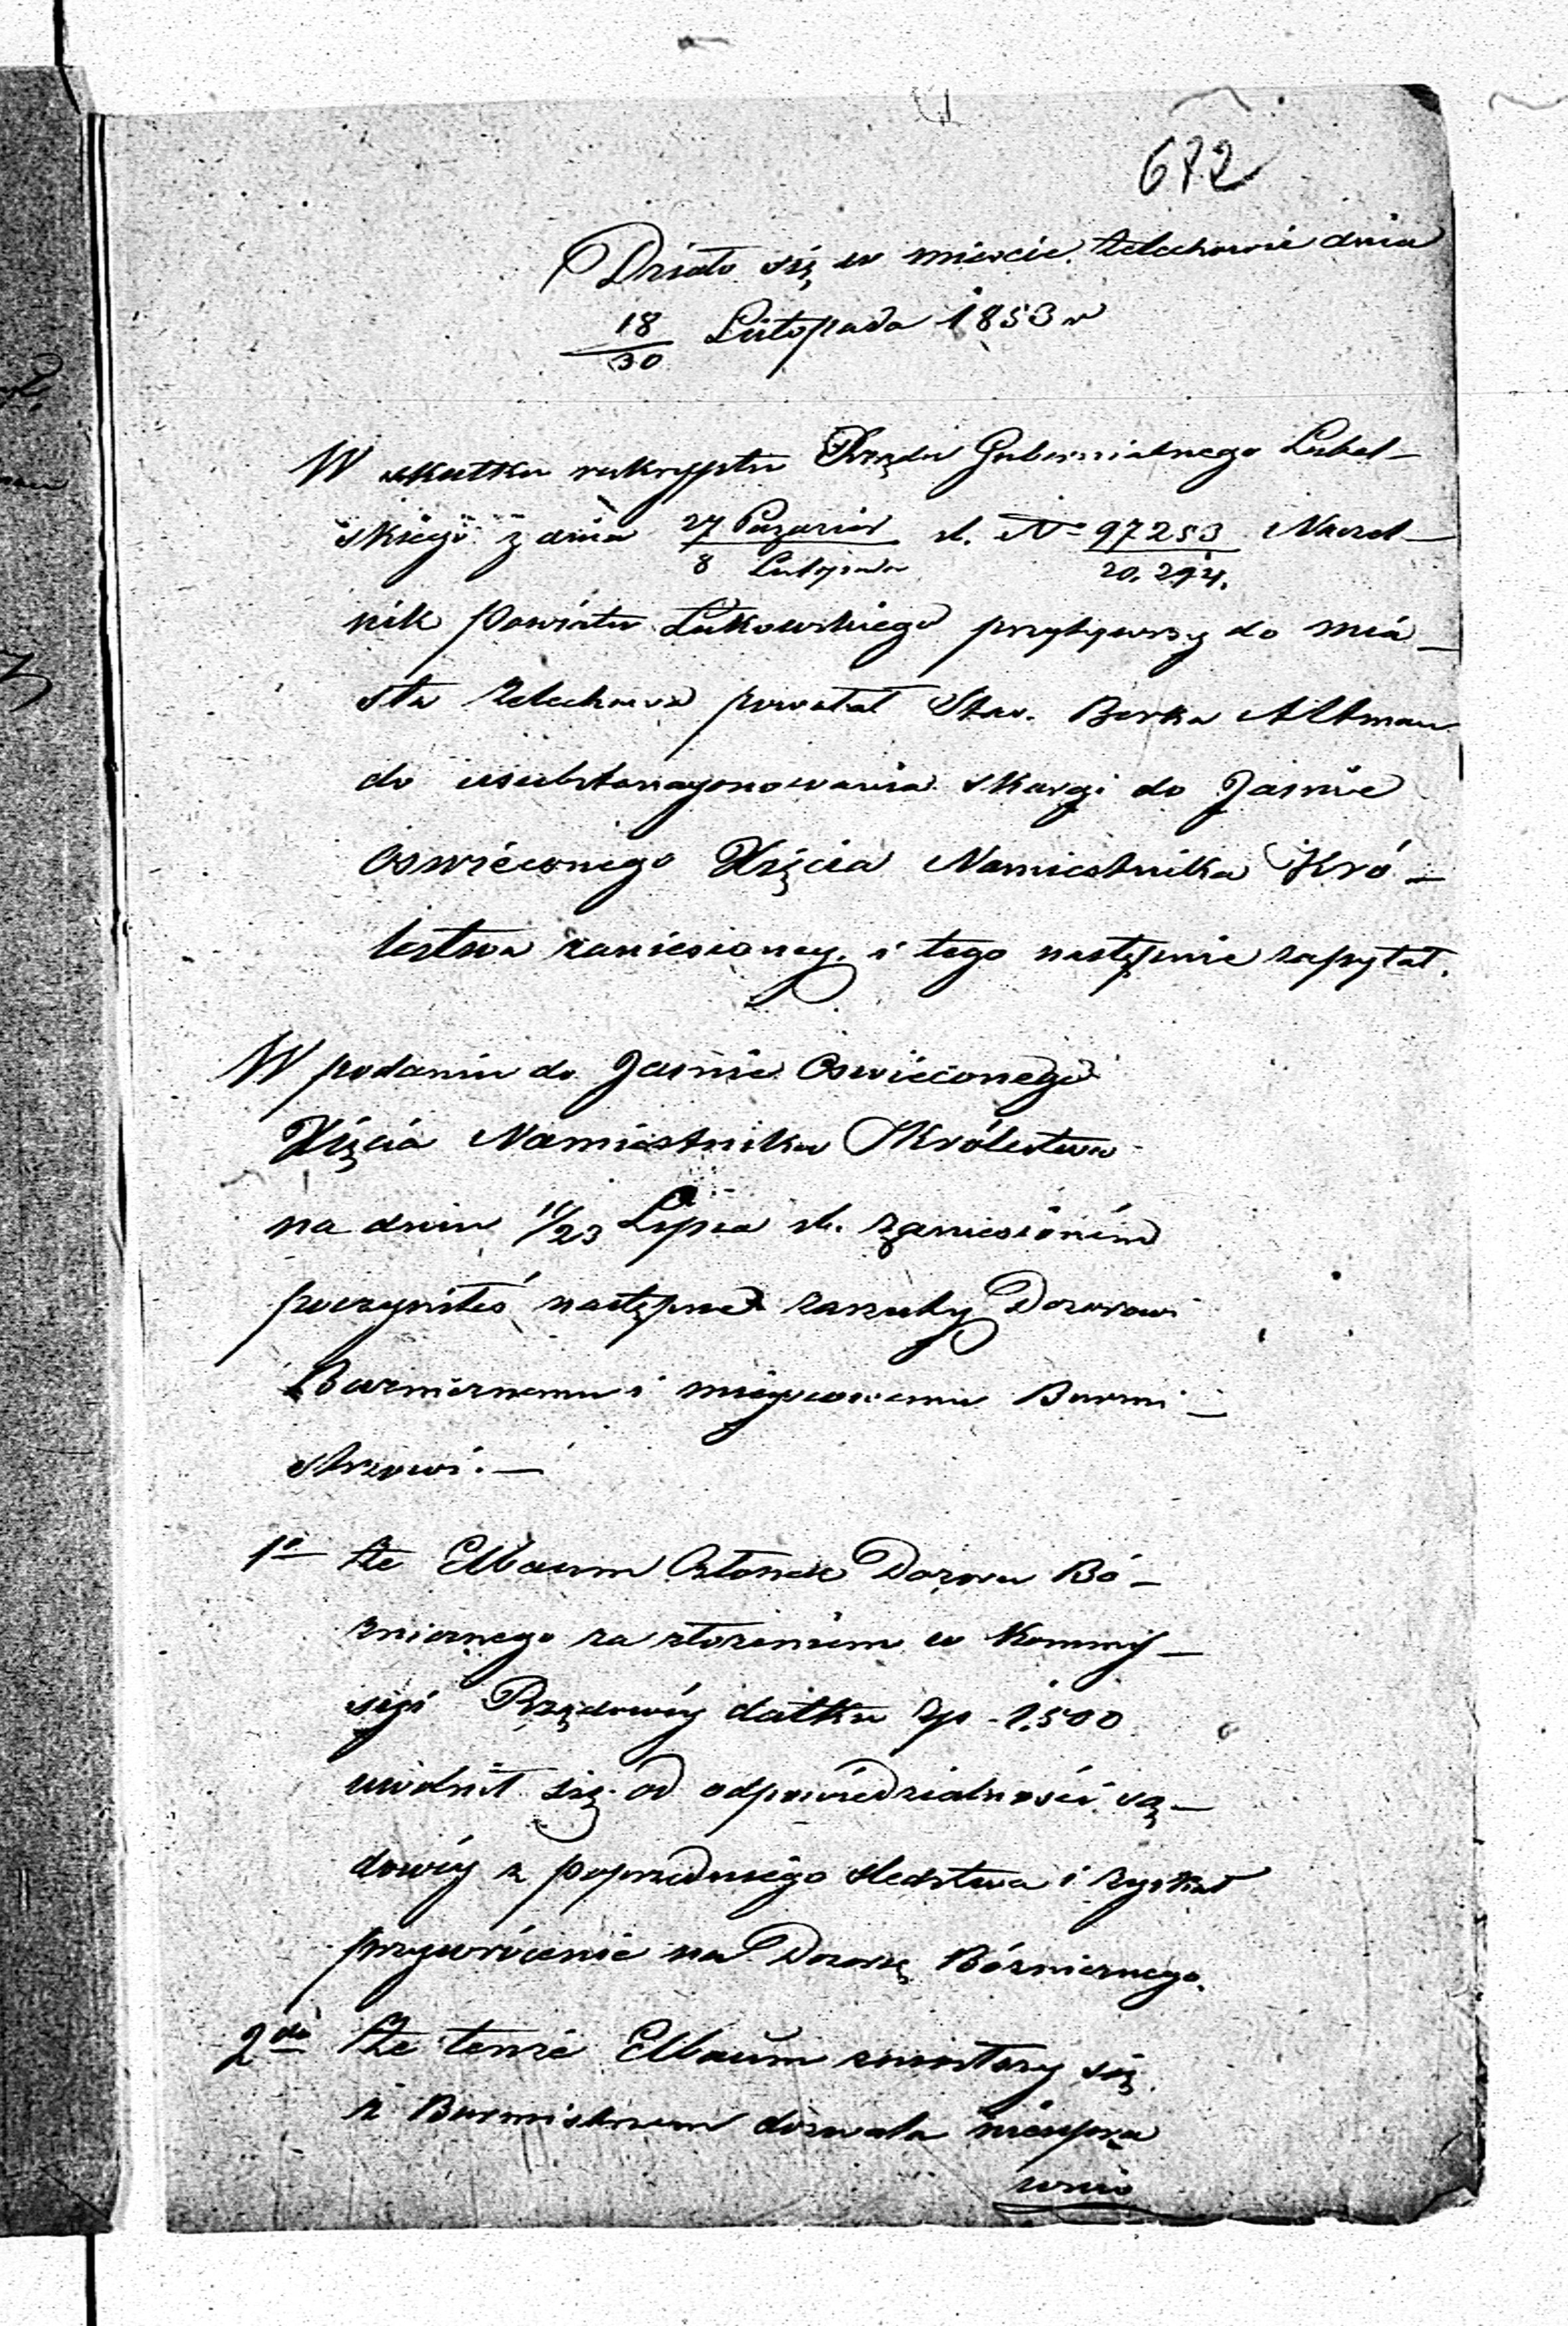 672
Działo się w mieście Żelechowie dnia
18/30 Listopada 1853 r
W skutku reskryptu Rządu Gubernialnego Lubel-
skiego z dnia 27 Paździer / 8 Listopada r.b. N° 97253/20,294. Naczel-
nik Powiatu Łukowskiego przybywszy do mia-
sta Żelechowa powołał Star. Berka Altman
do usubstancyonowania skargi do Jaśnie
Oświeconego Xięcia Namiestnika Kró-
lestwa zaniesioney, i tego następnie zapytał.
W podaniu do Jaśnie Oświeconego
Xięcia Namiestnika Królestwa
na dniu 11/23 Lipca r.b. zaniesioném
poczyniłeś następne zarzuty Dozorowi
Bużniczemu i mieyscowemu Burmi-
strzowi.—
1° że Elbaum Członek Dozoru Bó-
żnicznego za złożeniem w Kommis-
syi Rządowéy datku Zp. 1,500
uwolnił się od odpowiedzialności są-
dowéy z poprzedniego śledztwa i zyskał
przywrócenie na Dozorcę Bóżnicznego.
2do Że tenże Elbaum zmówiwszy się
z Burmistrzem dozwala nieupra
wnio